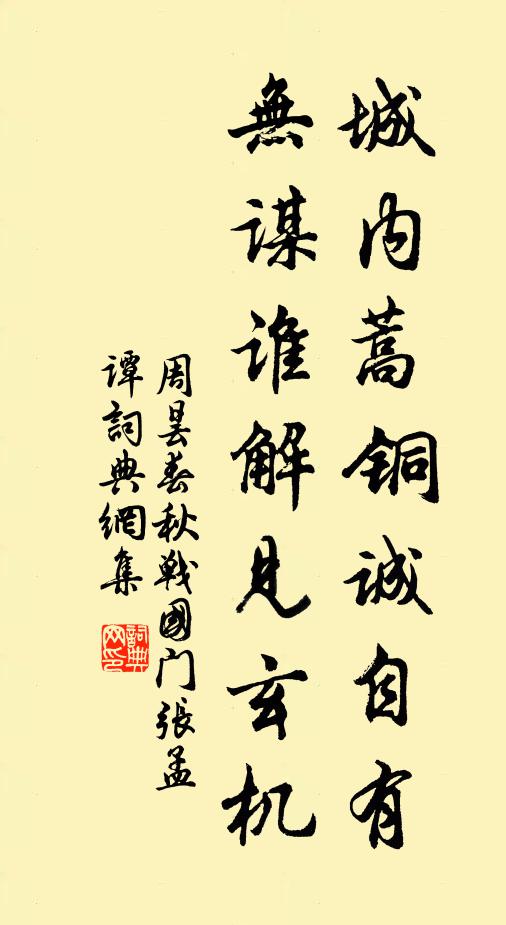 城内蒿铜誠自有
無謀谁解見玄机
周昙春秋戰國门張孟
谭詞典網集
詞典
网印